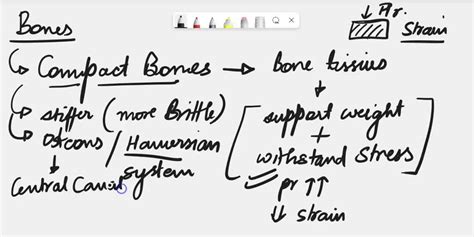 Bones
↓ Pr.
Strain
↳ Compact Bones → bone tissues
↳ stiffer (more Brittle)
↳ Osteons / Haversian system
↓
Central Canal
↓
[support weight
+
withstand stress]
pr ↑↑
↓ strain